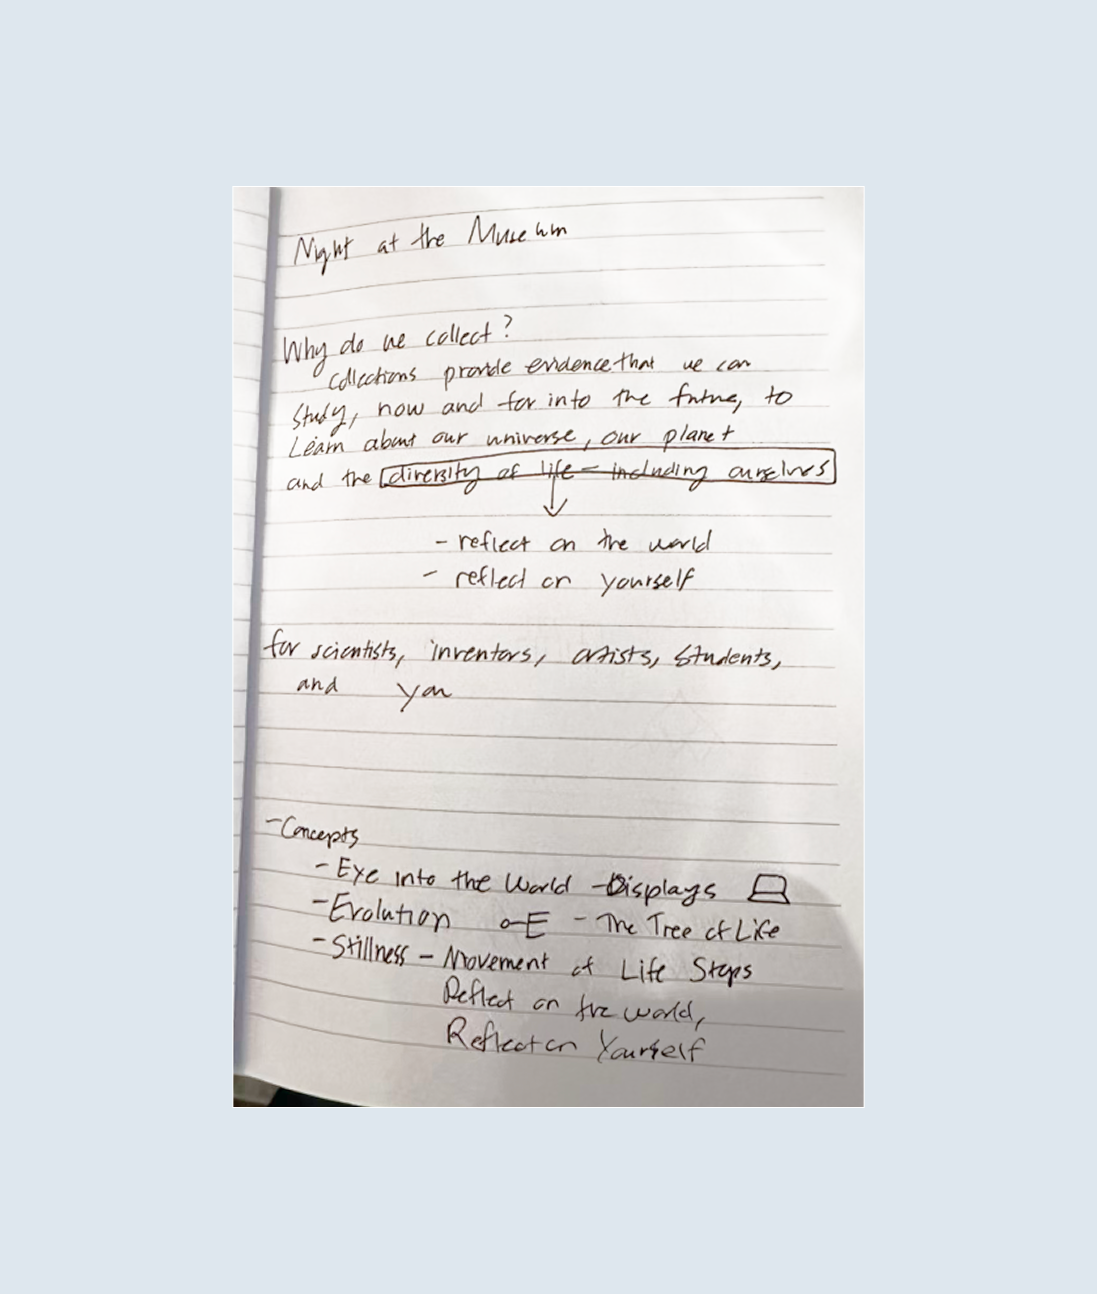 Night at the Museum
Why do we collect?
Collections provide evidence that we can
study, now and far into the future, to
Learn about our universe, our planet
and the diversity of life – including ourselves
- reflect on the world
- reflect on yourself
for scientists, inventors, artists, students,
and you
- Concepts
- Eye into the World - Displays
- Evolution - The Tree of Life
- Stillness - Movement of Life Stops
Reflect on the world,
Reflect on Yourself